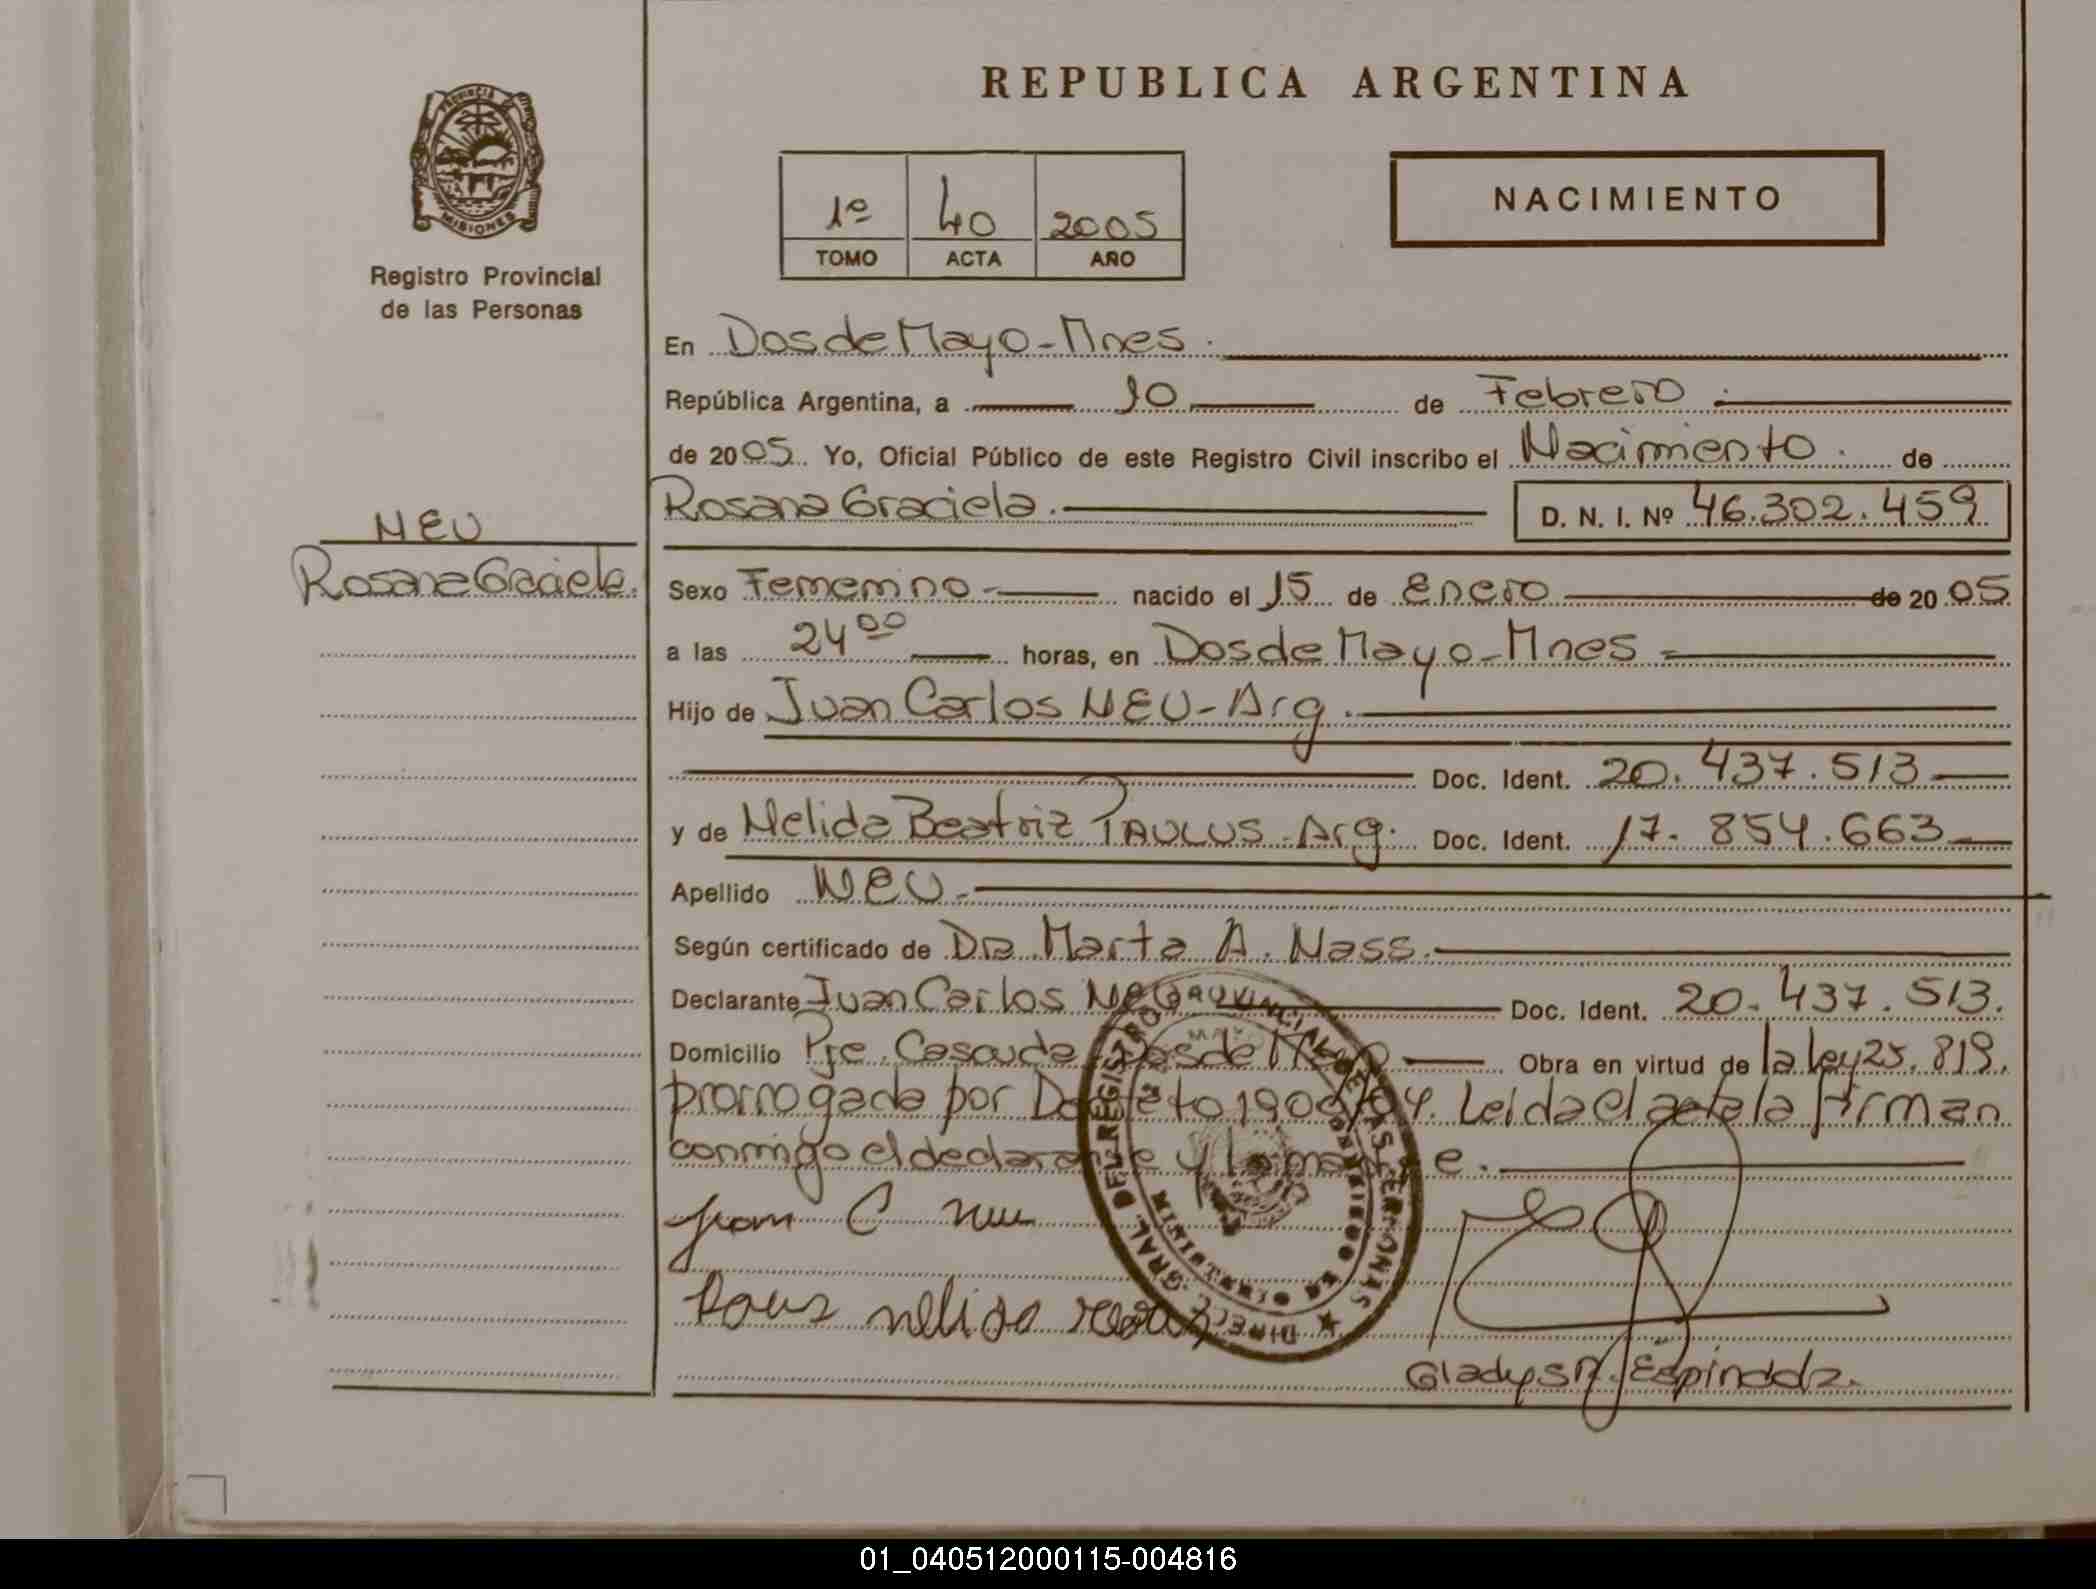 REPUBLICA ARGENTINA
PROVINCIA
MISIONES
Registro Provincial
de las Personas
1º 40 2005
TOMO ACTA AÑO
NACIMIENTO
En Dos de Mayo - Mnes.
República Argentina, a 10 de Febrero.
de 2005 Yo, Oficial Público de este Registro Civil inscribo el Nacimiento. de
Rosana Graciela. D. N. I. Nº 46.302.459
NEU
Rosana Graciela.
Sexo Femenino nacido el 15 de Enero de 2005
a las 24 00 horas, en Dos de Mayo - Mnes
Hijo de Juan Carlos NEU - Arg.
Doc. Ident. 20.437.513
y de Nelida Beatriz PAULUS - Arg. Doc. Ident. 17.854.663
Apellido NEU.
Según certificado de Dra. Marta A. Nass.
Declarante Juan Carlos NEU Doc. Ident. 20.437.513.
Domicilio Pje. Cascuda Dos de Mayo Obra en virtud de la ley 25.819.
prorrogada por Decreto 1900/04. Leida el acta la firman
conmigo el declarante y la madre.
Juan C Neu
Paus nelida
DIRECC. GRAL. DEL REGISTRO PROVINCIAL DE LAS PERSONAS
Gladys R. Espindola.
01_040512000115-004816